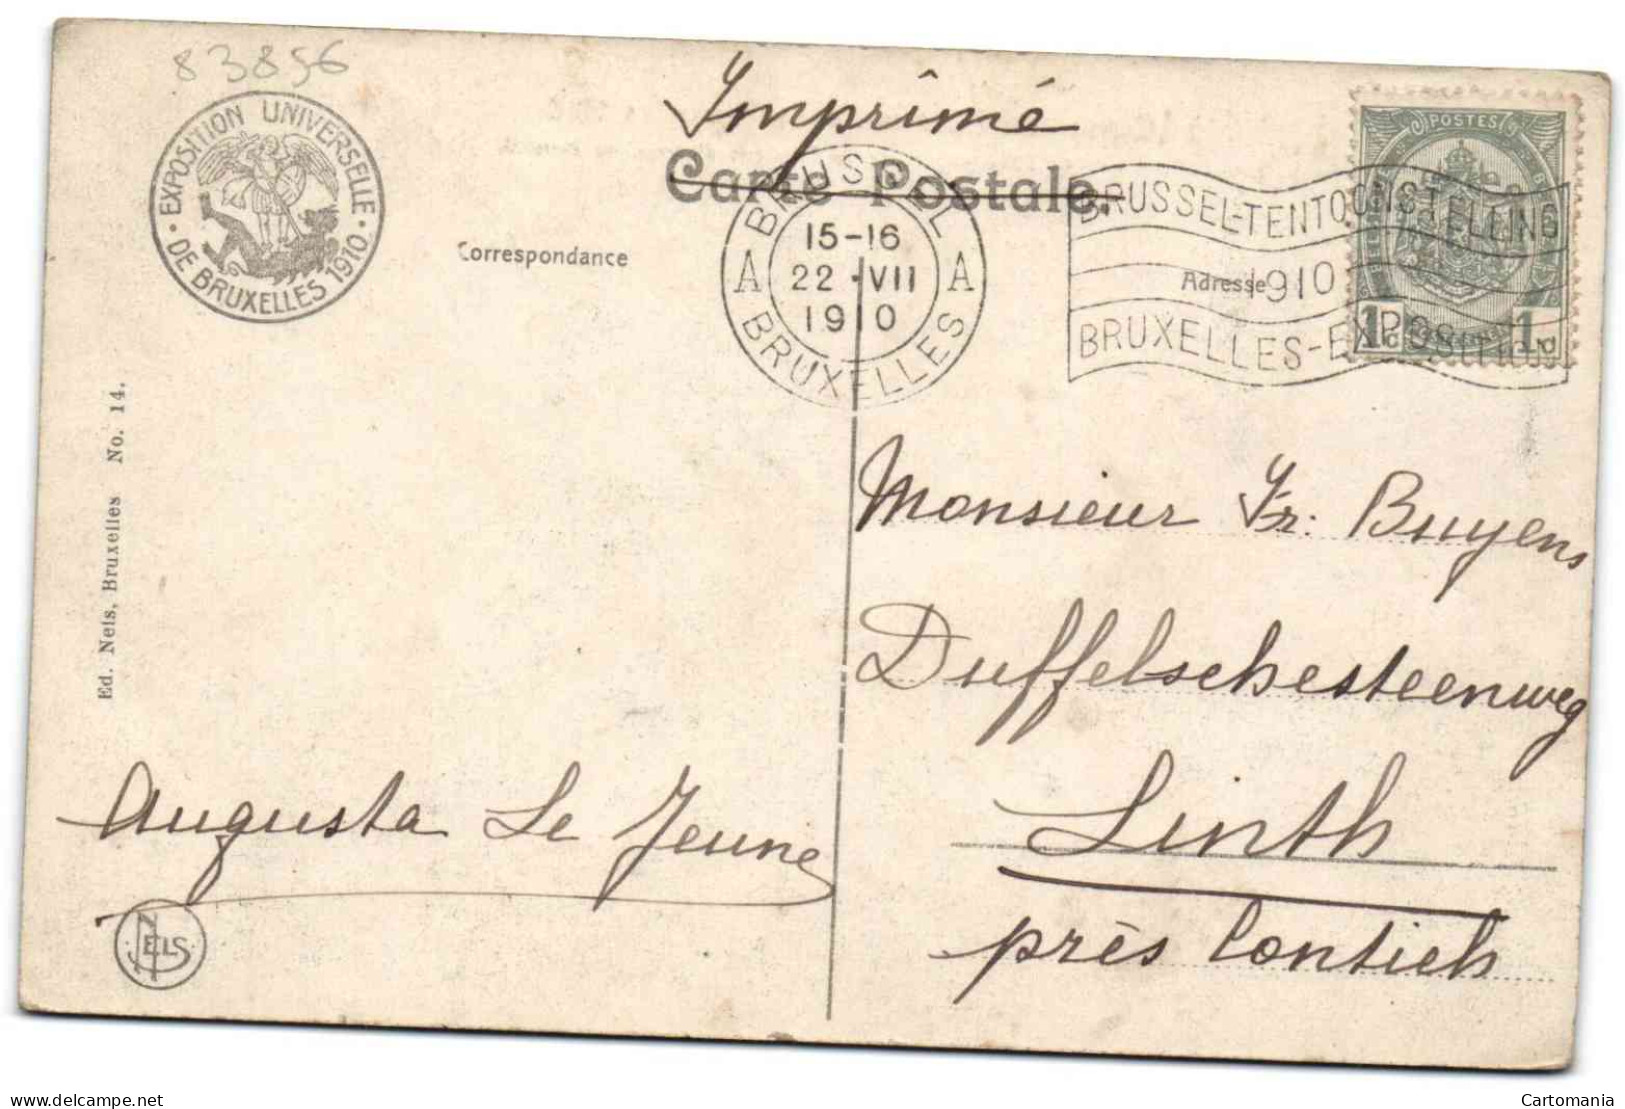 83856
EXPOSITION UNIVERSELLE
· DE BRUXELLES 1910 ·
Imprimé
Carte Postale.
Correspondance
Adresse
BRUSSEL
A 15-16 A
22 · VII
1910
BRUXELLES
BRUSSEL-TENTOONSTELLING
1910
BRUXELLES-EXPOSITION
POSTES
1c. 1c.
Ed. Nels, Bruxelles No. 14.
Monsieur Fr: Buyens
Duffelschesteenweg
Linth
près Contich
Augusta Le Jeune
NELS
Delcampe.net
Cartomania